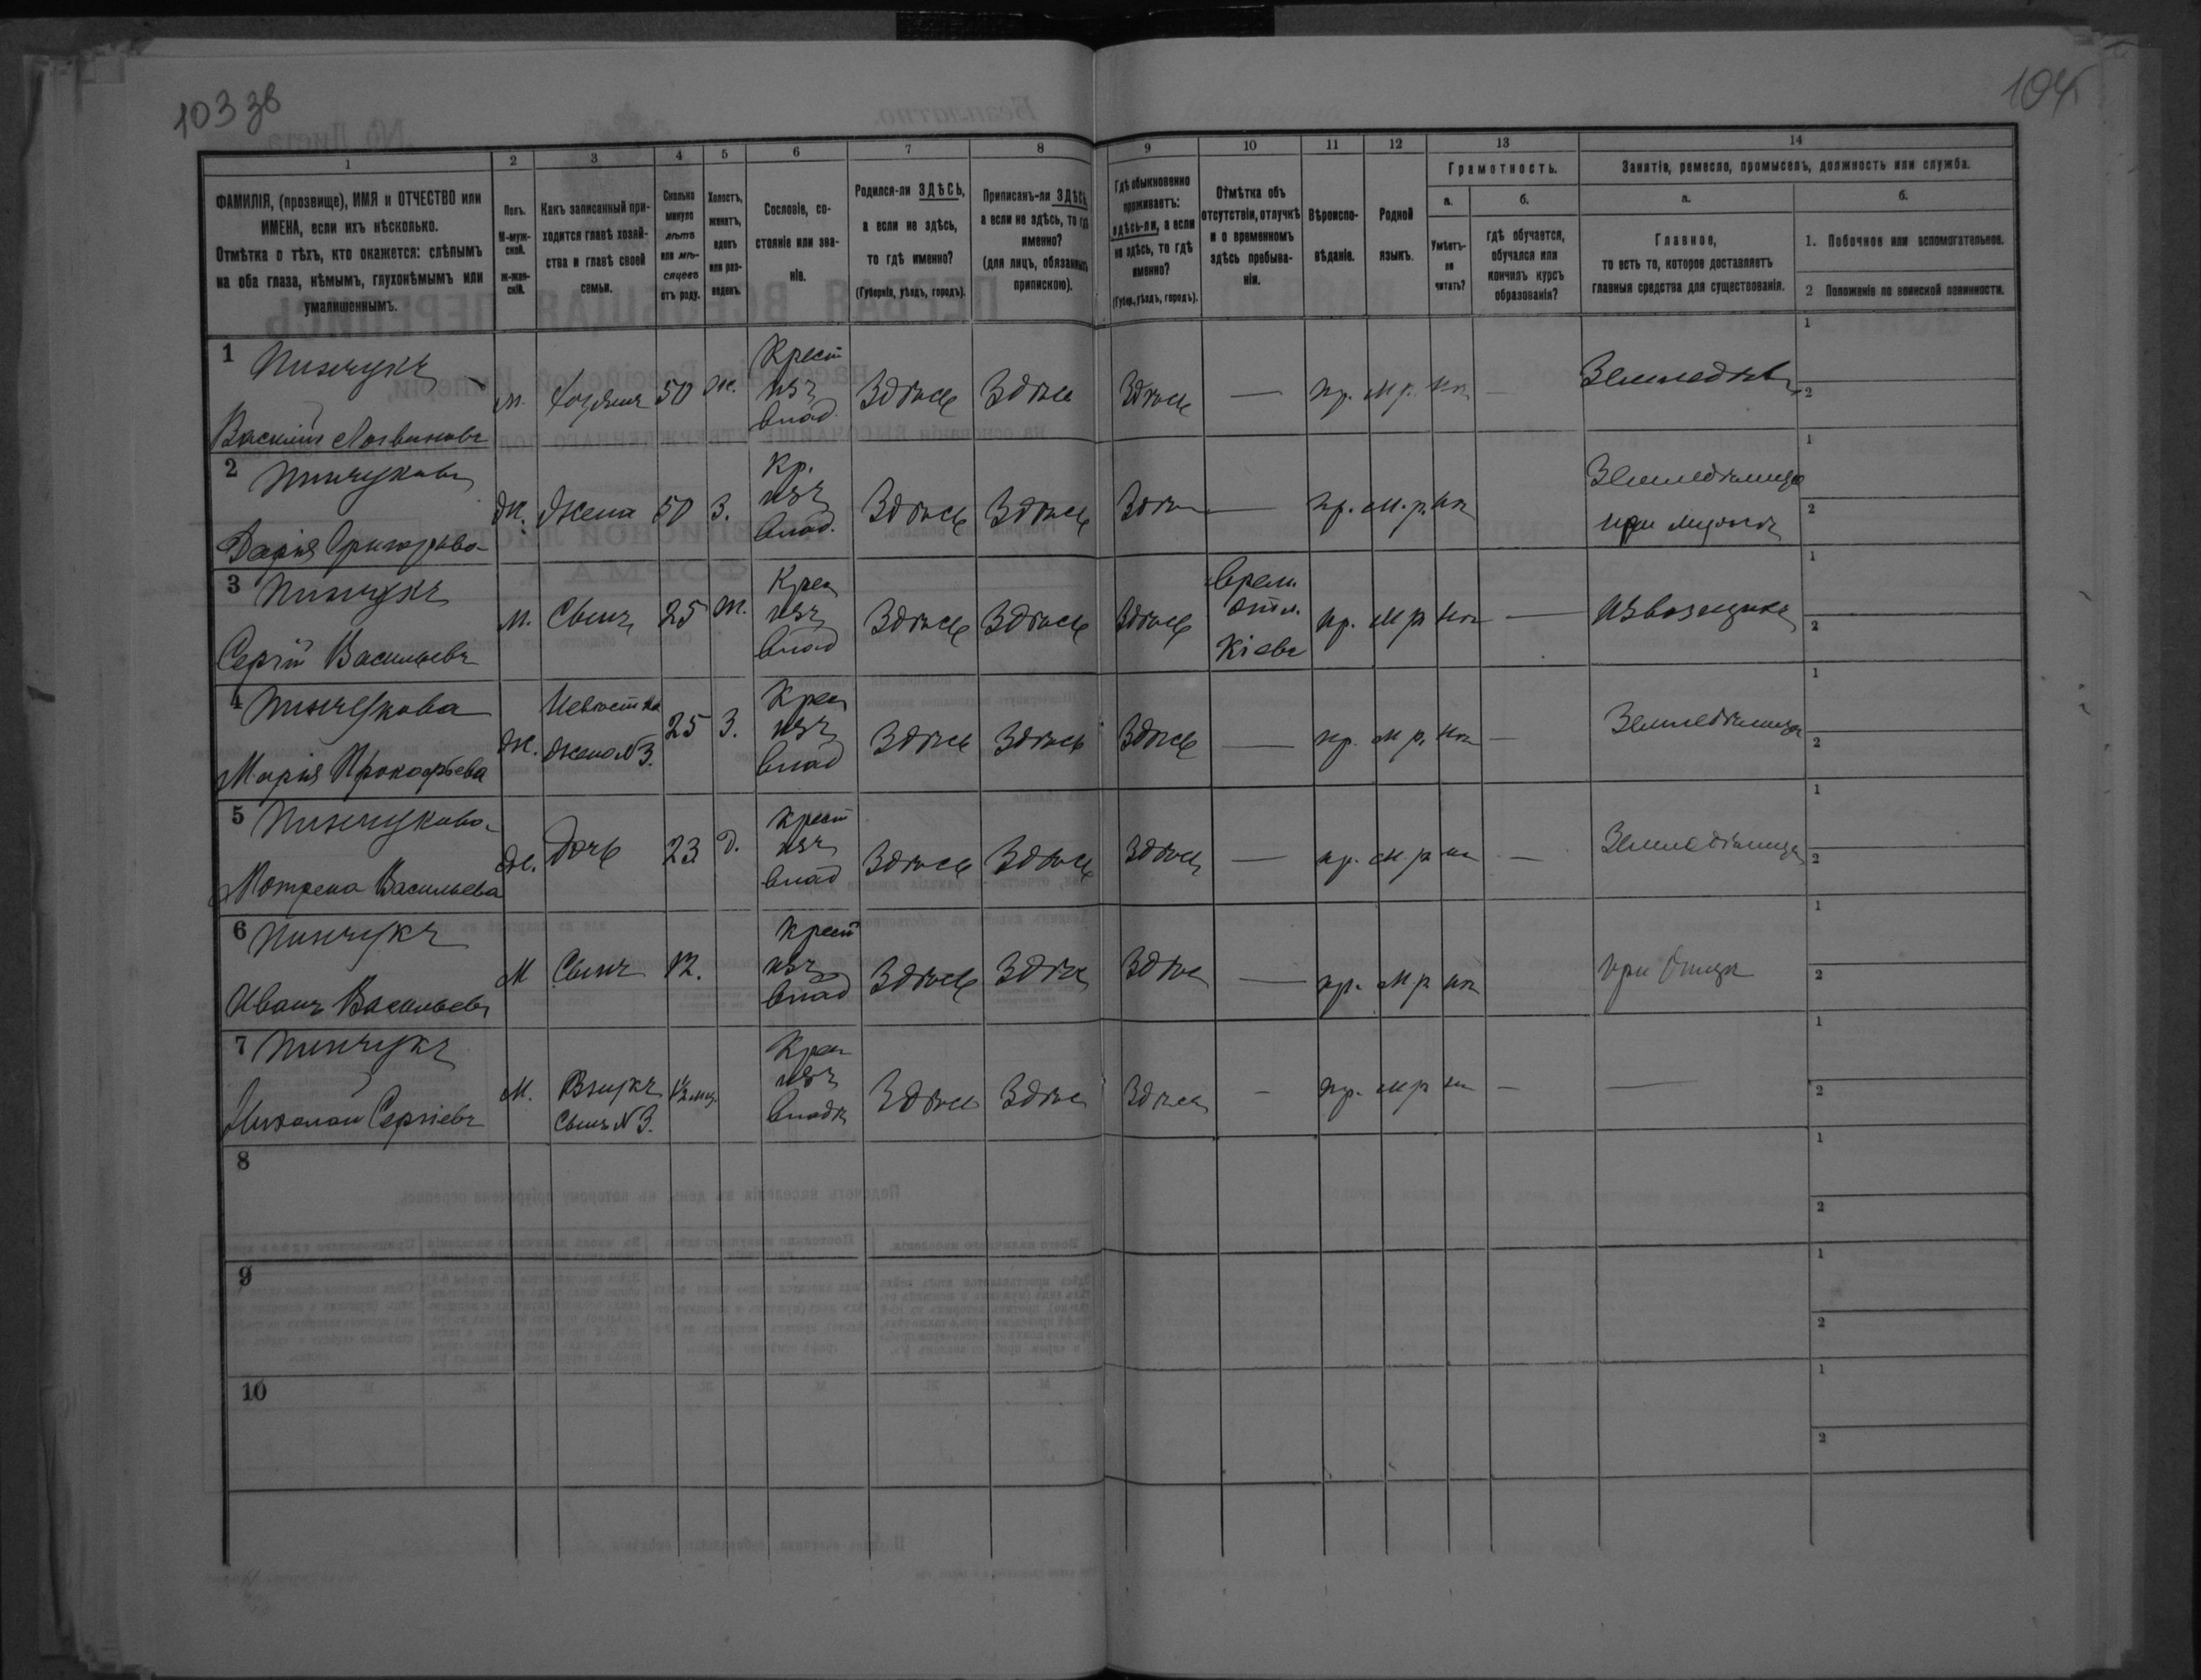 103 зв
104
1
2
3
4
5
6
7
8
9
10
11
12
13
14
ФАМИЛІЯ, (прозвище), ИМЯ и ОТЧЕСТВО или
ИМЕНА, если ихъ нѣсколько.
Отмѣтка о тѣхъ, кто окажется: слѣпымъ
на оба глаза, нѣмымъ, глухонѣмымъ или
умалишоннымъ.
Полъ.
М-муж-
ской.
ж-жен-
скій.
Какъ записанный при-
ходится главѣ хозяй-
ства и главѣ своей
семьи.
Сколько
минуло
лѣтъ
или мѣ-
сяцевъ
отъ роду.
Холостъ,
женатъ,
вдовъ
или раз-
веденъ.
Сословіе, со-
стояніе или зва-
ніе.
Родился-ли ЗДѢСЬ,
а если не здѣсь,
то гдѣ именно?
(Губернія, уѣздъ, городъ).
Приписанъ-ли ЗДѢСЬ,
а если не здѣсь, то гдѣ
именно?
(для лицъ, обязанныхъ
припискою).
Гдѣ обыкновенно
проживаетъ:
здѣсь-ли, а если
не здѣсь, то гдѣ
именно?
(Губер., уѣздъ, городъ).
Отмѣтка объ
отсутствіи, отлучкѣ
и о временномъ
здѣсь пребыва-
ніи.
Вѣроиспо-
вѣданіе.
Родной
языкъ.
Грамотность.
а.
Умѣетъ-
ли
читать?
б.
гдѣ обучается,
обучался или
кончилъ курсъ
образованія?
Занятія, ремесло, промыселъ, должность или служба.
а.
Главное,
то есть то, которое доставляетъ
главныя средства для существованія.
б.
1. Побочное или вспомогательное.
2 Положеніе по воинской повинности.
1 Пинчукъ
Василій Логвиновъ
м. Хозяинъ 50 ж. Крест изъ влад. Здѣсь Здѣсь Здѣсь — пр. м р. нѣ — Земледѣл 1 2
2 Пинчукова
Дарія Григорьева
ж. Жена 50 З. Кр. изъ влад. Здѣсь Здѣсь Здѣ — пр. м. р. нѣ Земледѣлица при мужѣ 1 2
3 Пинчукъ
Сергій Васильевъ
м. Сынъ 25 ж. Крес изъ влад Здѣсь Здѣсь Здѣсь Врем. отл. Кіевъ пр. м р нѣ — Извозщикъ 1 2
4 Пинчукова
Марія Прокофьева
ж. Невѣстка жена N 3. 25 З. Крес изъ влад Здѣсь Здѣсь Здѣсь — пр. м р. нѣ — Земледѣлица 1 2
5 Пинчукова
Мотрена Васильева
ж. Дочь 23 д. Крест изъ влад Здѣсь Здѣсь Здѣсь — пр. м. р нѣ — Земледѣлица 1 2
6 Пинчукъ
Иванъ Васильевъ
М Сынъ 12. Крест изъ влад Здѣсь Здѣсь Здѣсь — пр. м р нѣ при Отцѣ 1 2
7 Пинчукъ
Николай Сергіевъ
М. Внукъ Сынъ N 3. 1½ мц. Крес изъ влад Здѣсь Здѣсь Здѣсь — пр. м р нѣ — — 1 2
8 1 2
9 1 2
10 1 2